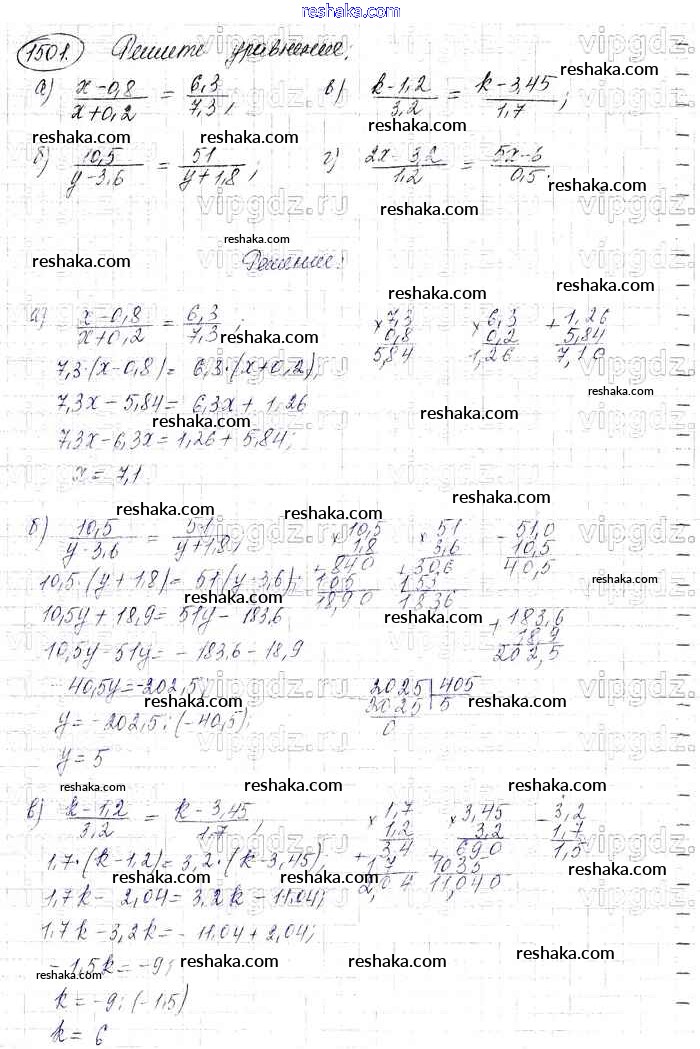 reshaka.com
1501. Решите уравнение:
а) x-0,8/x+0,2 = 6,3/7,3; в) k-1,2/3,2 = k-3,45/1,7;
б) 10,5/y-3,6 = 51/y+1,8; г) 2x-3,2/1,2 = 5x-6/0,5.
Решение:
а) x-0,8/x+0,2 = 6,3/7,3; × 7,3 0,8 5,84 × 6,3 0,2 1,26 + 1,26 5,84 7,10
7,3·(x-0,8)= 6,3·(x+0,2);
7,3x-5,84= 6,3x+1,26
7,3x-6,3x=1,26+5,84;
x=7,1
б) 10,5/y-3,6 = 51/y+1,8; × 10,5 1,8 + 840 105 18,90 × 51 3,6 + 306 153 183,6 - 51,0 10,5 40,5
10,5·(y+1,8)= 51(y-3,6);
10,5y+18,9= 51y-183,6 + 183,6 18,9 202,5
10,5y-51y= -183,6-18,9
-40,5y=-202,5; 2025 405 2025 5 0
y=-202,5:(-40,5);
y=5
в) k-1,2/3,2 = k-3,45/1,7; × 1,7 1,2 + 34 17 2,04 × 3,45 3,2 + 690 1035 11,040 - 3,2 1,7 1,5
1,7·(k-1,2)=3,2·(k-3,45);
1,7k-2,04=3,2k-11,04;
1,7k-3,2k=-11,04+2,04;
-1,5k=-9;
k=-9:(-1,5)
k=6